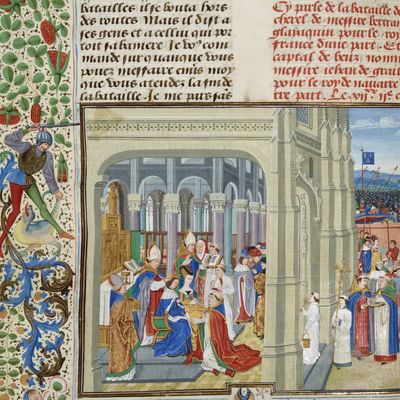 batailles il se bouta hors
des routes Mais il dist a
ses gens et a cellui qui por
toit sa baniere Je vo9 com
mande sur quanque vous
pouez meffaire enuers moy
que vous atendez la fin de
la bataille Je me pars sãs
Cy parle de la bataille de
cherel de messire bertran
glaiquin pour le roy
france dune part Et
captal de beuz nomme
messire iehan de grail
pour le roy de nauarre
tre part. Le .vij. c